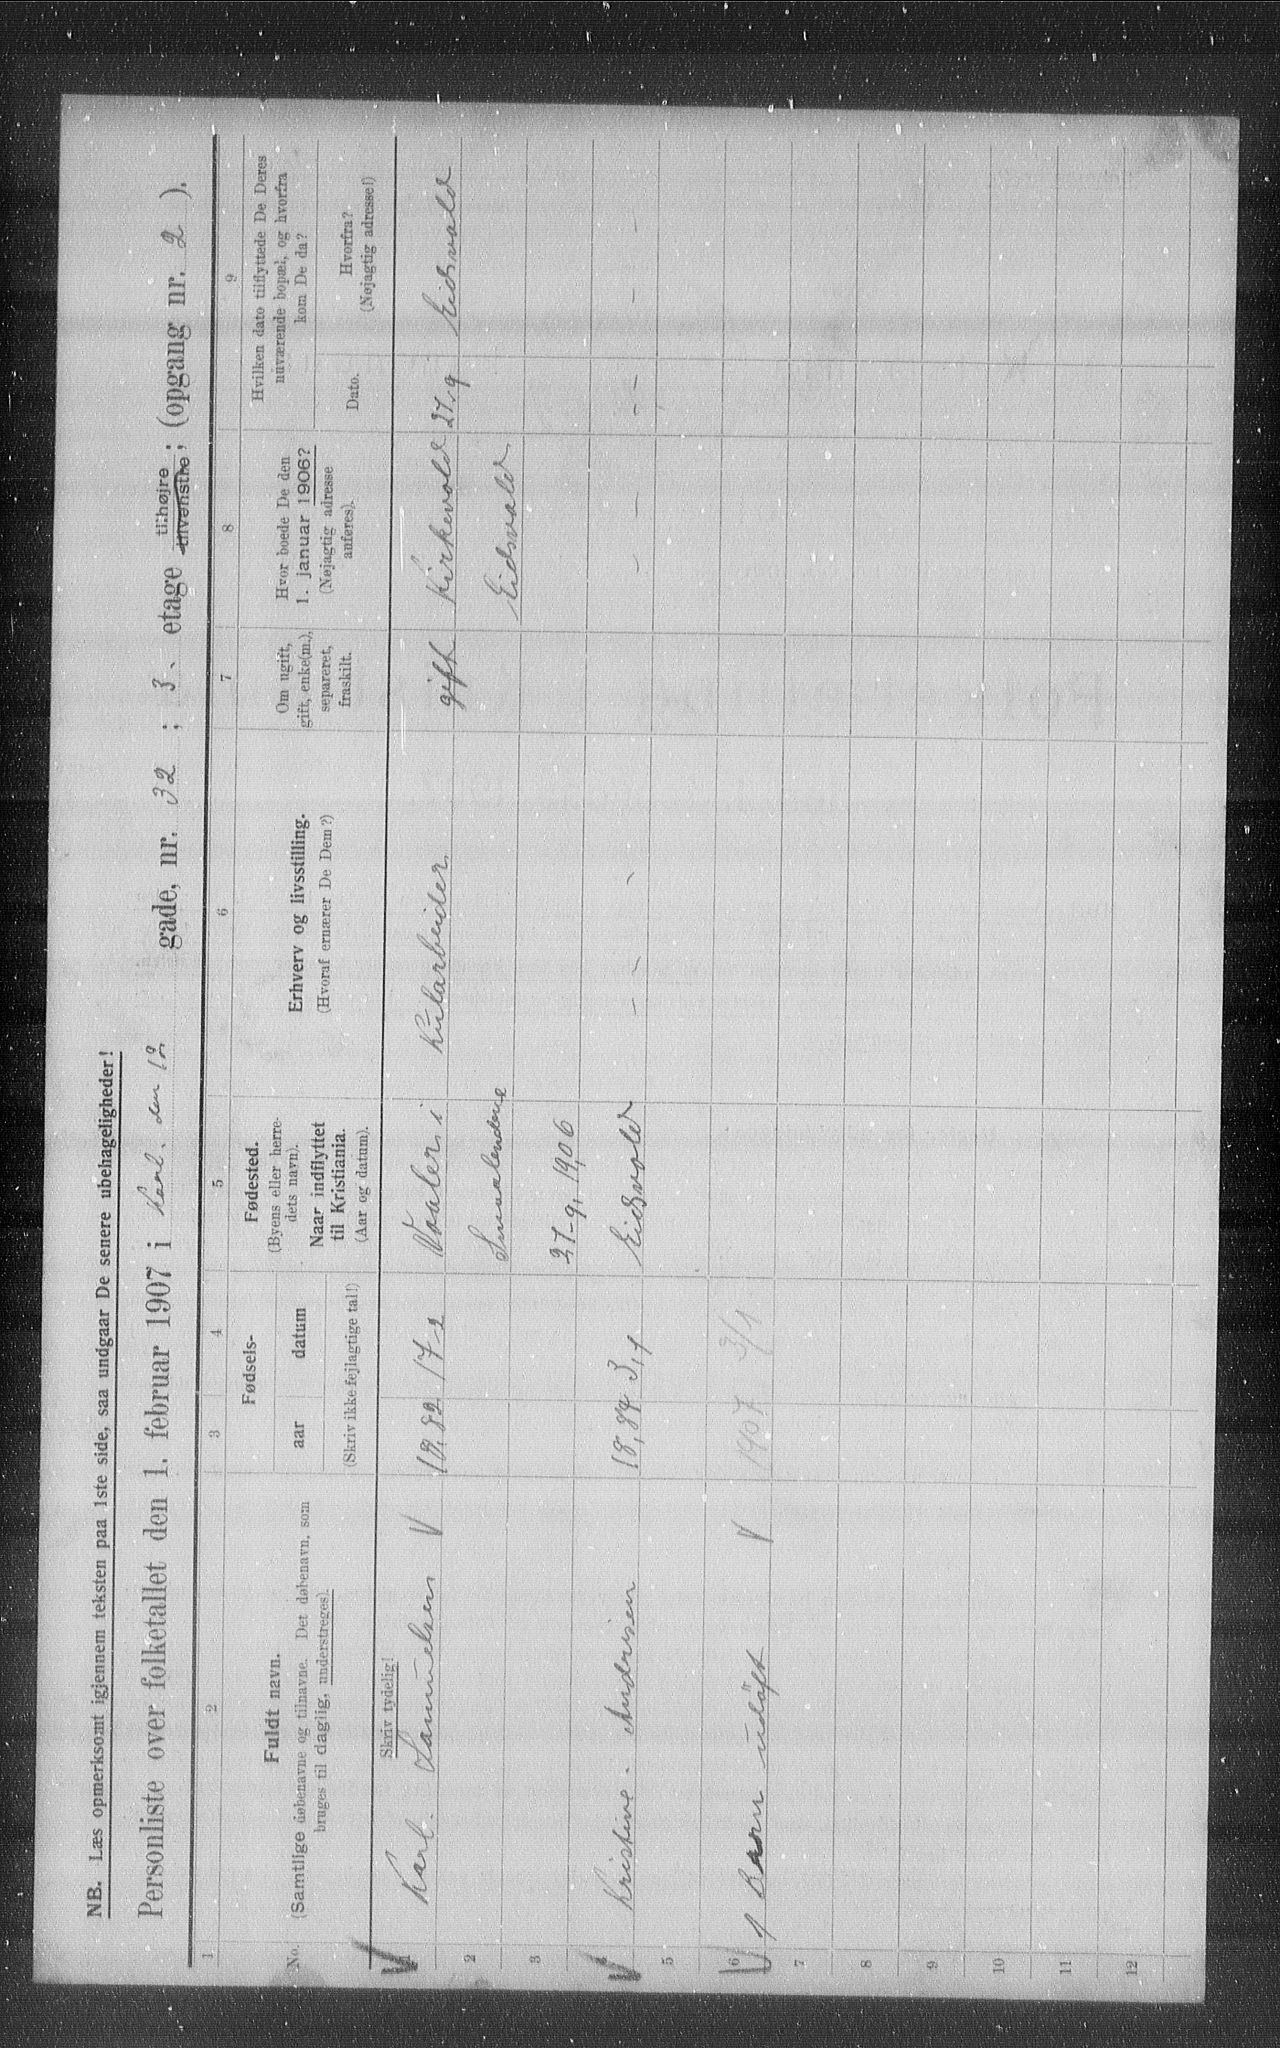 NB. Læs opmerksomt igjennem teksten paa 1ste side, saa undgaar De senere ubehageligheder!
Personliste over folketallet den 1. februar 1907 i Karl den 12 gade, nr. 32 ; 3. etage til højre tilvenstre ; (opgang nr. 2 ).
1 2 3 4 5 6 7 8 9
No.
Fuldt navn.
(Samtlige døbenavne og tilnavne. Det døbenavn, som
bruges til daglig, understreges).
Fødsels-
aar datum
(Skriv ikke fejlagtige tal!)
Fødested.
(Byens eller herre-
dets navn).
Naar indflyttet
til Kristiania.
(Aar og datum).
Erhverv og livsstilling.
(Hvoraf ernærer De Dem?)
Om ugift,
gift, enke(m.),
separeret,
fraskilt.
Hvor boede De den
1. januar 1906?
(Nøjagtig adresse
anføres).
Hvilken dato tilflyttede De Deres
nuværende bopæl, og hvorfra
kom De da?
Dato.
Hvorfra?
(Nøjagtig adresse!)
Skriv tydelig!
1 Karl. Samuelsen V 18,82 17-2 Vaaler i Kularbeider gift Kirkevold 27,9 Eidsvold
2 Smaalendene Eidsvold
3 27-9, 1906
4 Kristine. Andrisen 18,84 3,1 Eidsvold - - - - - - - - - - - -
5
6 1 Barn udøbt V 1907 3/1
7
8
9
10
11
12